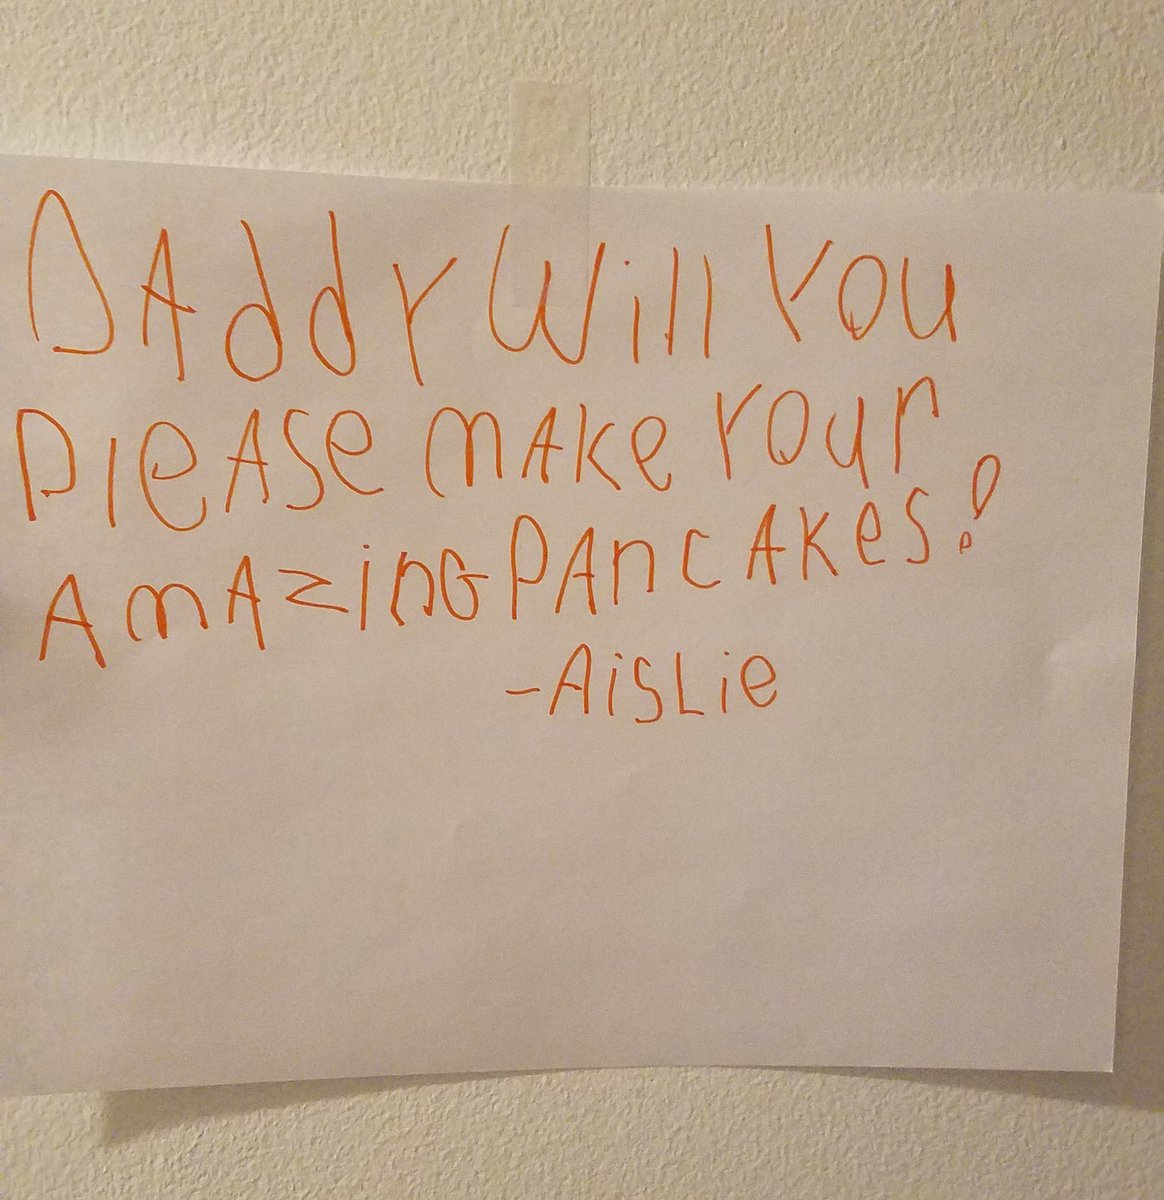 DAddy Will You
PleASe mAke Your
AmAzinG PAncAkes!
-AisLie